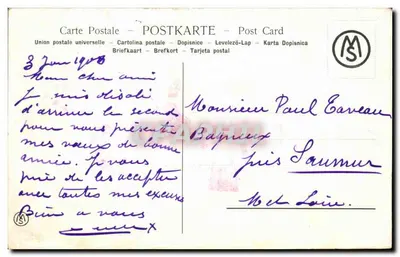 Carte Postale - POSTKARTE - Post Card
Union postale universelle - Cartolina postale - Dopisnice - Levelező-Lap - Karta Dopisnica
Briefkaart - Brefkort - Tarjeta postal
MS
3 Jan 1908
Mon cher ami
Je suis désolé
d'arriver le second
pour vous présenter
mes vœux de bonne
année. Je vous
prie de les accepter
avec toutes mes excuses
Bien à vous
Monsieur Paul Taveau
Bagneux
près Saumur
M et Loire.
MS